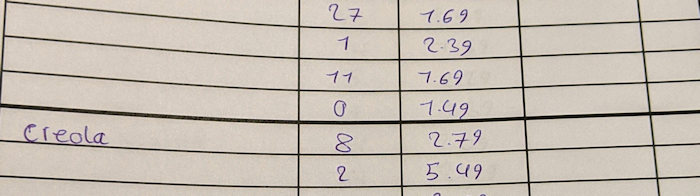 27 1.69
1 2.39
11 1.69
0 1.49
Creola 8 2.79
2 5.49